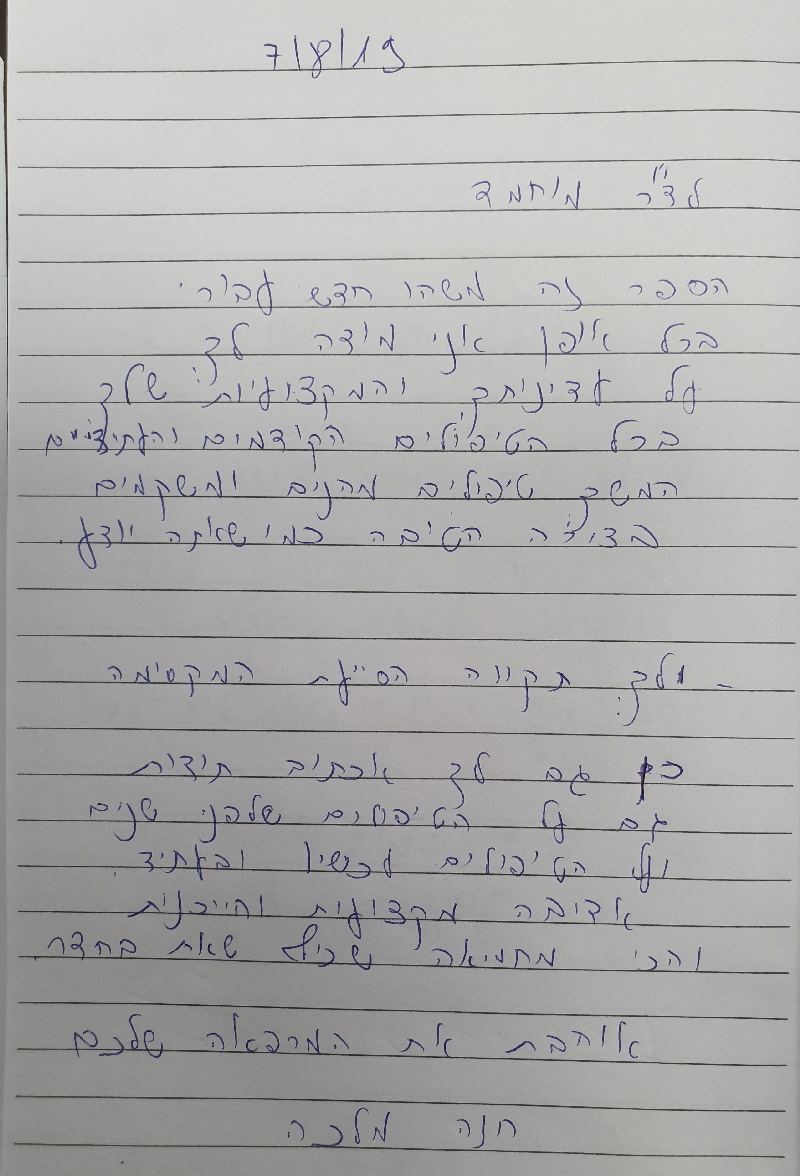 7/8/19
לד"ר מוחמד
הספר זה משהו חדש עבורי
בכל אופן אני מודה לך
על עדינותך והמקצועיות שלך
בכל הטיפולים הקודמים והעתידיים
המשך טיפולים מהנים ומשקמים
בדרך הטובה כמו שאתה יודע.
- ולך תקווה הסייעת המקסימה
כן גם לך אכתוב תודות
גם על הטיפולים שלפני שנים
ועל הטיפולים עכשיו ובעתיד.
אדיבה מקצועית וחייכנית
והכי מחמיאה שכיף שאת בחדר.
אוהבת את המרפאה שלכם
חנה מלכה